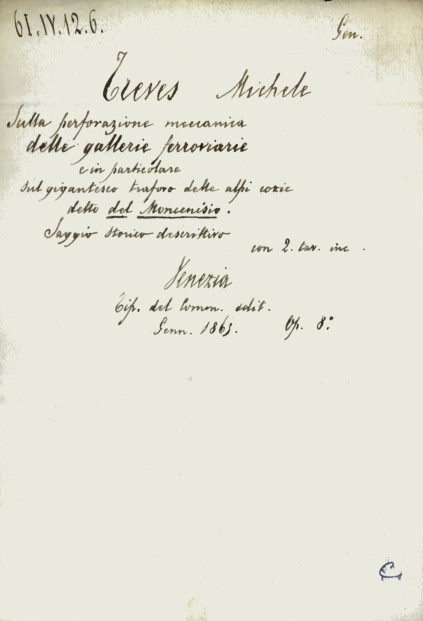 61.IV.12.6. Gen.
Treves Michele
Sulla perforazione meccanica
delle gallerie ferroviarie
e in particolare
sul gigantesco traforo delle alpi cozie
detto del Moncenisio.
Saggio storico descrittivo
con 2. tav. inc.
Venezia
Tip. del Comm. edit.
Genn. 1863. Op. 8°
C